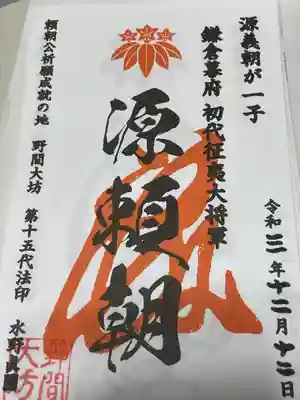 源義朝が一子
鎌倉幕府 初代征夷大将軍
令和三年十二月十二日
源頼朝
頼朝公祈願成就の地 野間大坊 第十五代法印
水野真圓
野間大坊